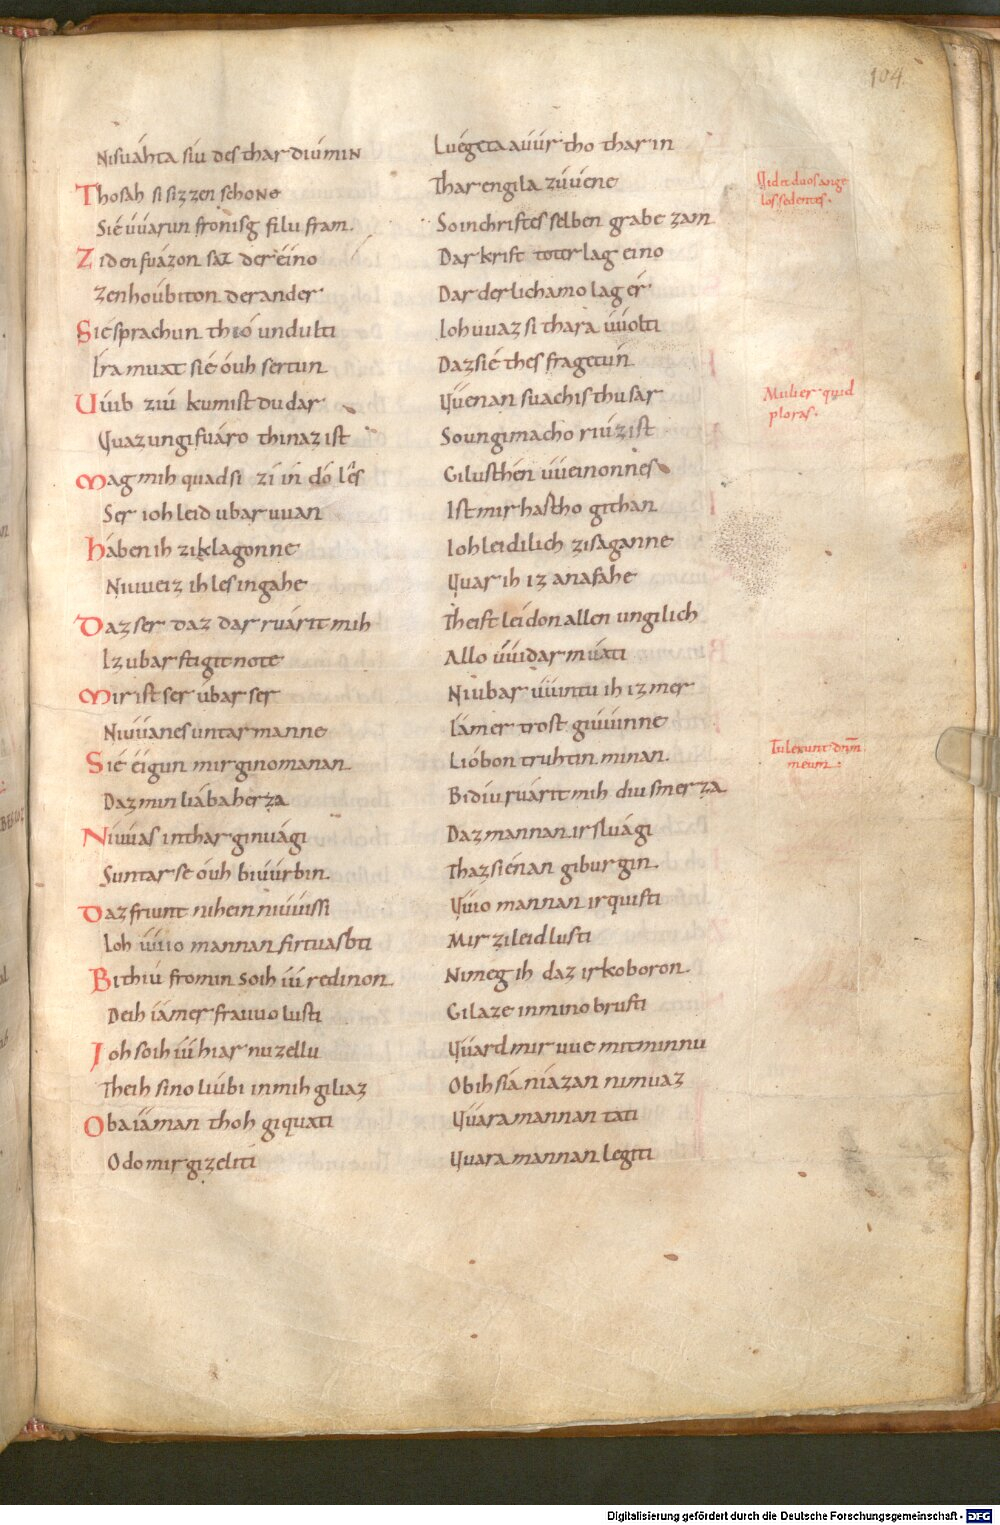 104
Nisuáhta síu des thar diú min Luégeta auúr tho thar in
Thosah si sizzen schone Thar engila zuúene
Sié uúarun fronisg filu fram. So in chriftes selben grabe zam
Uidet duos ange
los sedentes.
Ziden fuázon saz der eíno Dar krist toter lag eino
Zen hoúbiton der ander Dar der lichamo lag ér
Sié sprachun thió undulti Ioh uuaz si thara uúolti
Ira muat sié óuh sertun Daz sié thes fragetún
Uúib ziú kumist du dar Uúenan suachis thu sar
Mulier quid
ploras.
Uuaz ungifuáro thinaz ist So ungimacho riúzist
Mag mih quad si zi in dó lés Gilusthén uúeinonnes
Ser ioh leid ubar uuan Ist mir hastho githan
Háben ih ziklagonne Ioh leidilich zisaganne
Niuueiz ih les ingahe Uuar ih iz anafahe
Daz ser daz dar ruárit mih Theist leidon allen ungilich
Iz ubar stigit note Allo uúidar muati
Mir ist ser úbar ser Ni ubar uúintu ih iz mer
Niuúanes untar manne Iámer trost giuúinne
Sié éigun mir ginomanan Lióbon truhtin minan.
Tulerunt dnm
meum.
Daz min liába herza Bidiú ruárit mih diu smerza
Niuúas in thar ginuági Daz mannan irsluági
Suntar se óuh biuúrbin. Thaz sié nan giburgin.
Daz friunt nihein niuúissi Uúio mannan irquisti
Ioh uúio mannan firtuasbti Mir zi leidlusti
Bithiú fro min so ih iú redinon. Nimeg ih daz irkoboron.
Deih iámer frauuo lusti Gilaze in mino brusti
Ioh so ih iú hiar nu zellu Uúard mir uue mit minnu
Theih sino liúbi in mih giliaz Ob ih siá niázan nimuaz
Oba iáman thoh giquati Uúara man nan tati
Odo mir gizeliti Uuara man nan legiti
Digitalisierung gefördert durch die Deutsche Forschungsgemeinschaft - DFG